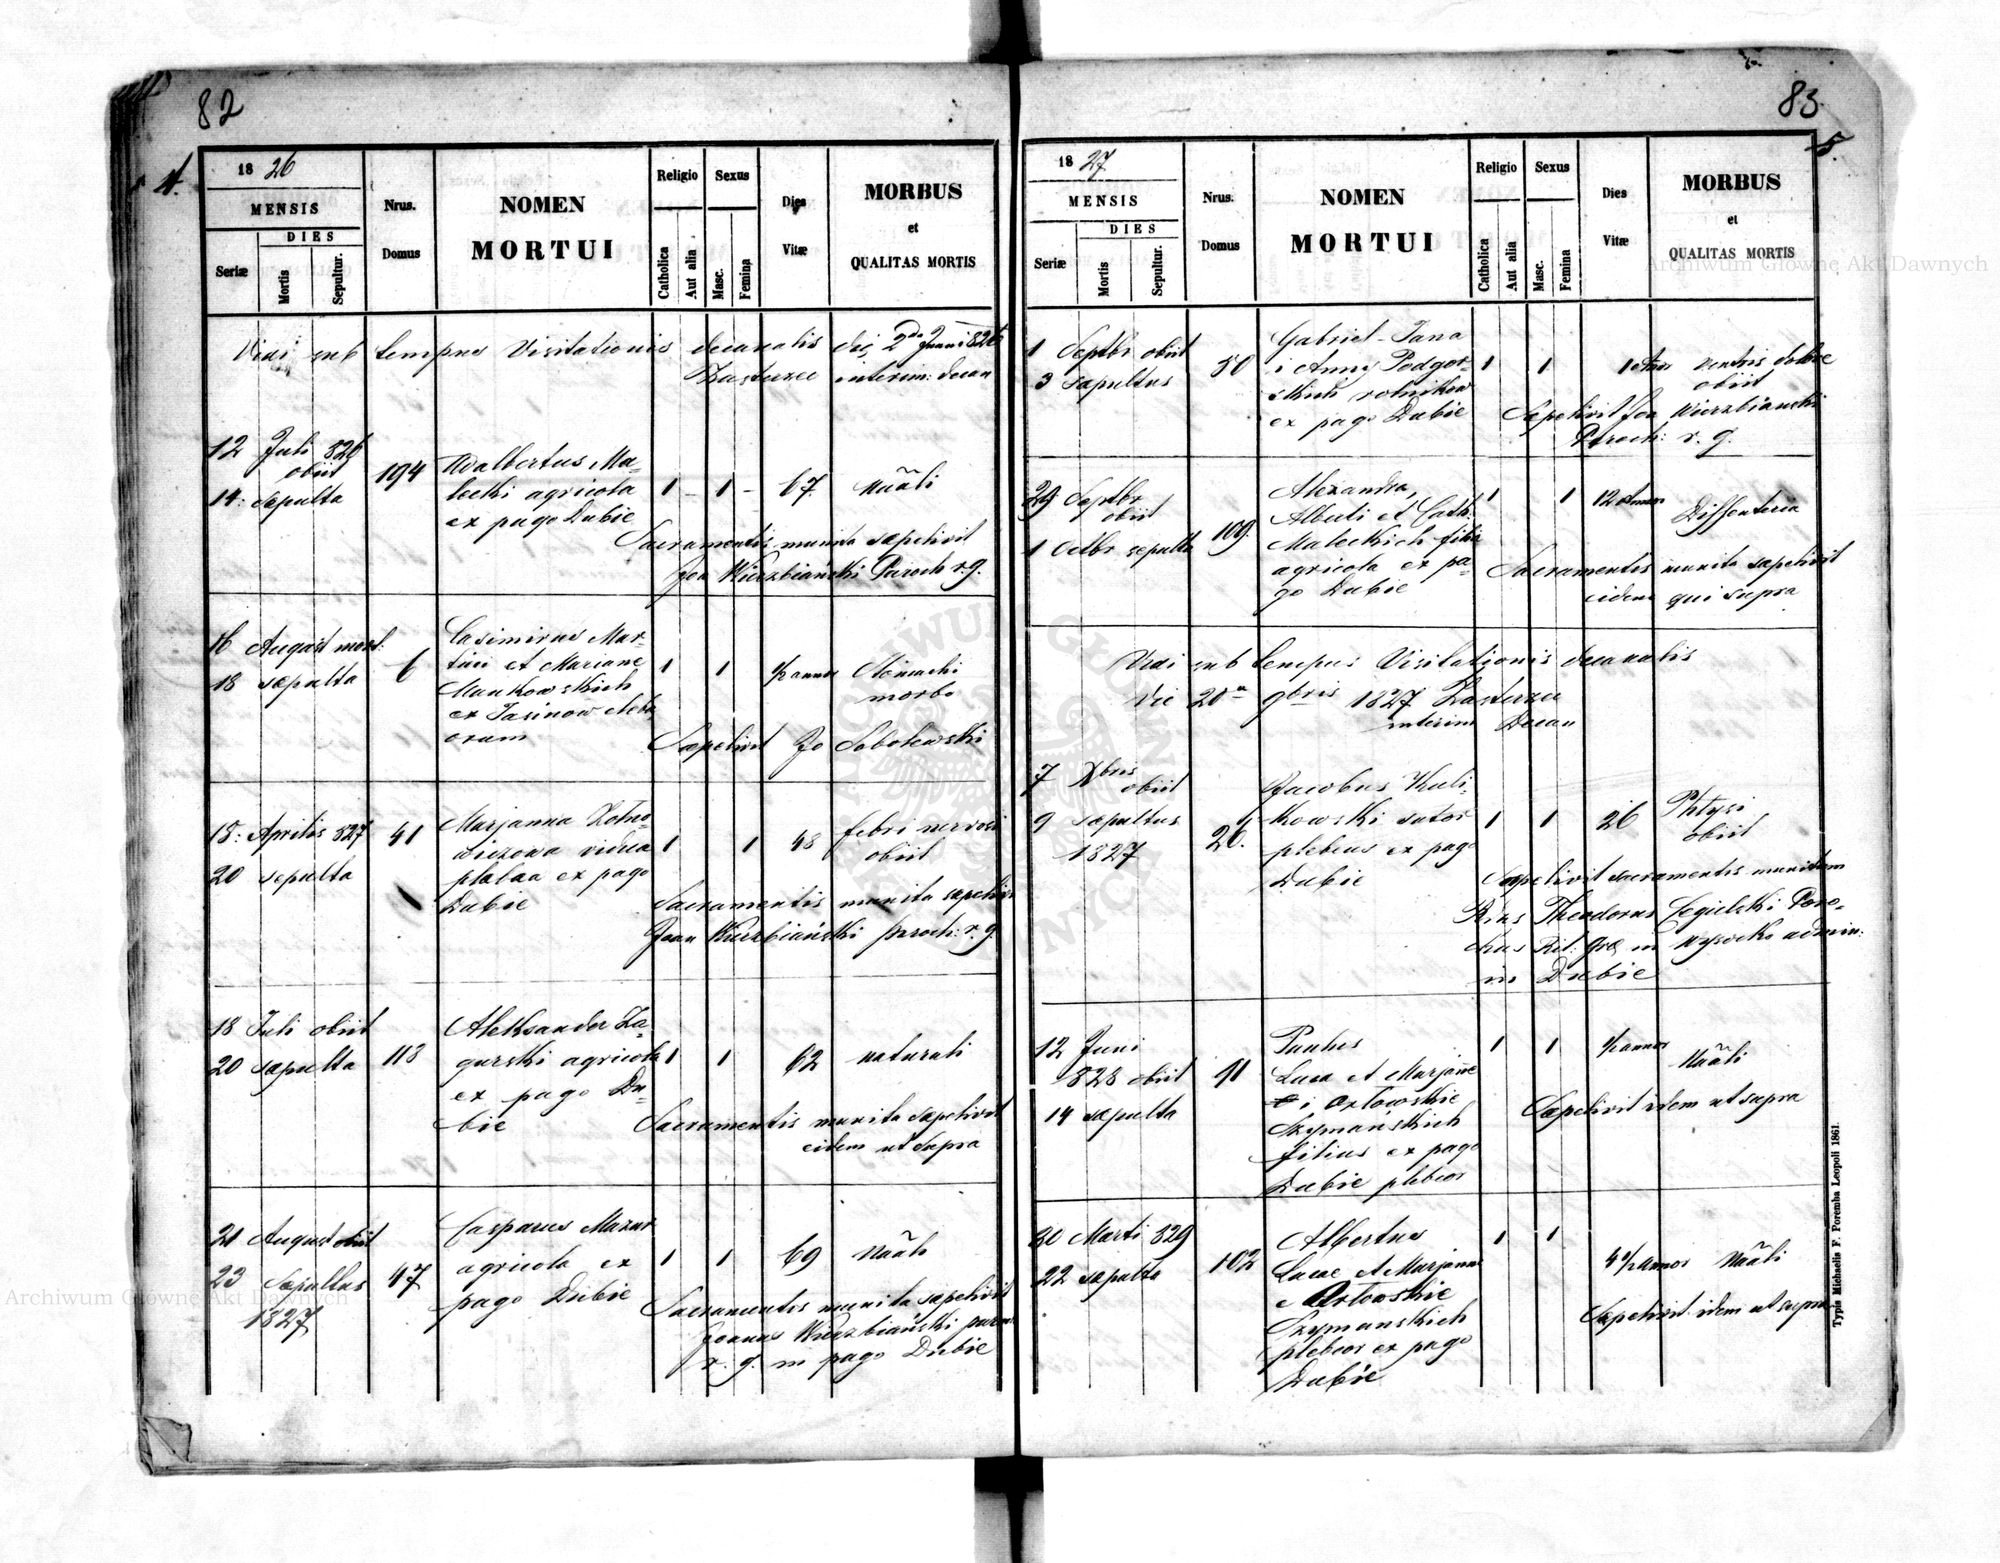 82
4.
1826
MENSIS
DIES
Seriæ
Mortis
Sepultur.
Nrus.
Domus
NOMEN
MORTUI
Religio
Catholica
Aut alia
Sexus
Masc.
Femina
Dies
Vitæ
MORBUS
et
QUALITAS MORTIS
Vidi sub tempus Visitationis decanalis die 2da Juni 826
interim: decan
12 Juli 826
obiit
14. sepulta
194
Adalbertus Ma-
lecki agricola
ex pago Dubie
1 - 1 - 67 nãali
Sacramentis munita sepelivit
Joa Wierzbiański Paroch r. g.
16 August mort:
18 sepulta
6
Casimirus Mar-
tini et Marianne
Mankowskich
ex Jasinow
1 1 ½ annor
morbo
Sepelivit Jo Sobolewski
18. Aprilis 827
20 sepulta
41
Marjanna
vidua
ex pago
Dubie
1 1 48 febri nervosi
obiit
Sacramentis munita sepelivit
Joan Wierzbiański paroch: r. g.
18 Juli obiit
20 sepulta
118
Aleksander Za-
gurski agricola
ex pago Du-
bie
1 1 62 naturali
Sacramentis munita sepelivit
eidem ut supra
21 August obiit
23 Sepultus
1827
47
Casparus Mazur
agricola ex
pago Dubie
1 1 69 nãali
Sacramentis munita sepelivit
Joannes Wierzbiański paroch
r. g. in pago Dubie
83
5.
1827
MENSIS
DIES
Seriæ
Mortis
Sepultur.
Nrus.
Domus
NOMEN
MORTUI
Religio
Catholica
Aut alia
Sexus
Masc.
Femina
Dies
Vitæ
MORBUS
et
QUALITAS MORTIS
1 Septbr obiit
3 sepultus
50
Gabriel Jana
i Anny Podgor-
skich rolnikow
ex pago Dubie
1 1 1 Annor ventris dolore
obiit
Sepelivit Joa Wierzbianski
Paroch: r. g.
29 Septbr
obiit
1 Octbr sepulta
109.
Alexandra,
Alberti et Cath:
Maleckich filia
agricola ex pa-
go Dubie
1 1 12 Annor Dissenteria
Sacramentis munita sepelivit
eidem qui supra
Vidi sub tempus Visitationis decanalis
die 20a 9bris 1827
interim Decan
7 Xbris
obiit
9 sepultus
1827
26.
Jacobus Kuli-
kowski sutor
plebeus ex pago
Dubie
1 1 26 Phtysi
obiit
Sepelivit sacramentis munitum
Theodorus Cegielski Paro-
chus Rit: Gre in Wysocko admin:
in Dubie
12 Juni
828 obiit
14 sepulta
91
Paulus
Luca et Marjanne
i Orłowskie
Szymańskich
filius ex pago
Dubie plebeor
1 1 ½ annor Nãali
Sepelivit idem ut supra
20 Marti 829
22 sepulta
102
Albertus
Lucae et Marjanne
Orłowskie
Szymanskich
plebeor ex pago
Dubie
1 1 4½ Annor Nãali
Sepelivit idem ut supra
Typis Michaelis F. Poremba Leopoli 1861.
Archiwum Główne Akt Dawnych
Archiwum Główne Akt Dawnych